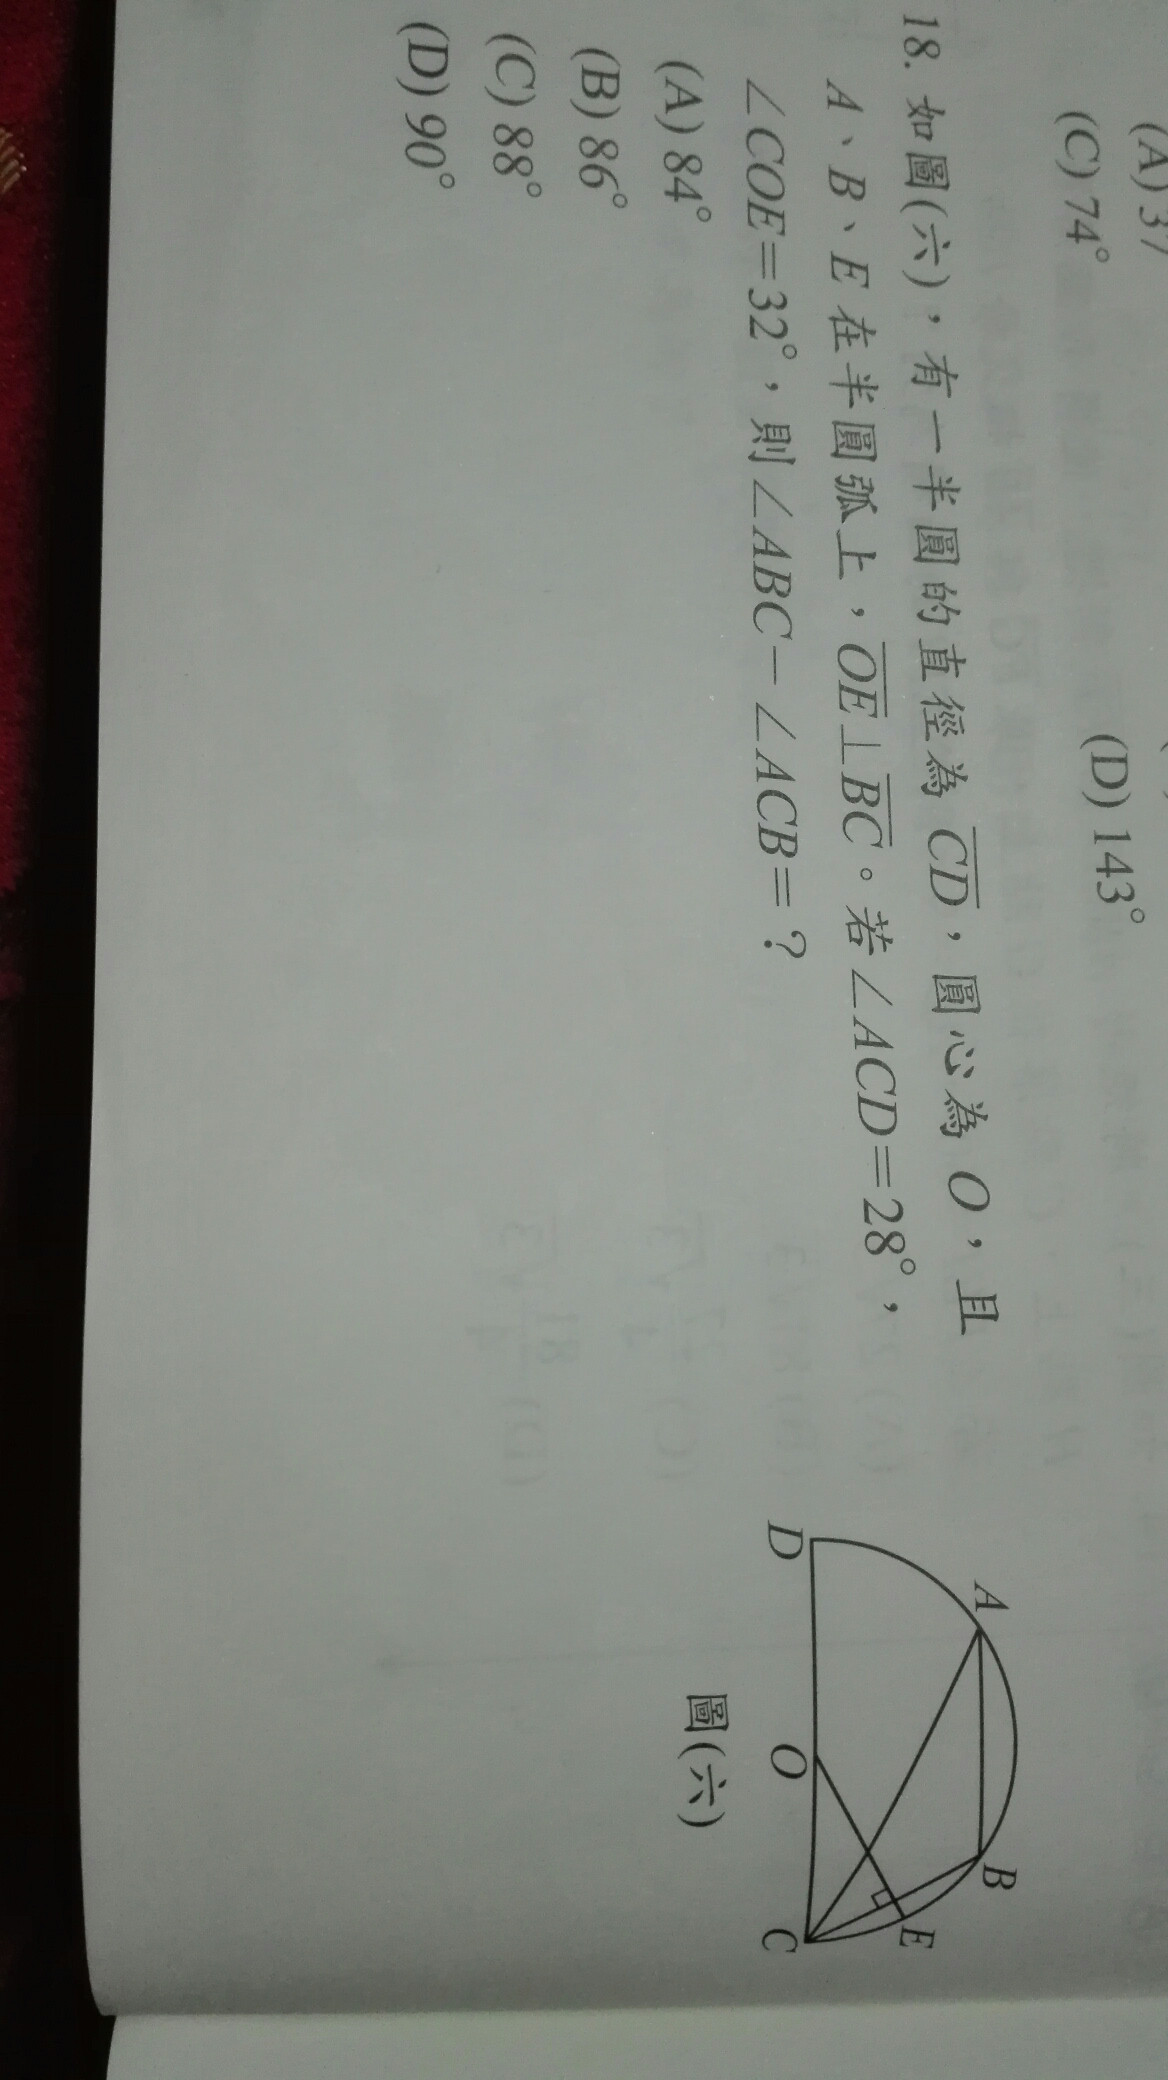 (A) 37
(C) 74°
(D) 143°
18. 如圖(六)，有一半圓的直徑為 CD，圓心為 O，且
A、B、E 在半圓弧上，OE⊥BC。若∠ACD=28°，
∠COE=32°，則∠ABC－∠ACB=？
(A) 84°
(B) 86°
(C) 88°
(D) 90°
A
B
E
D
O
C
圖(六)